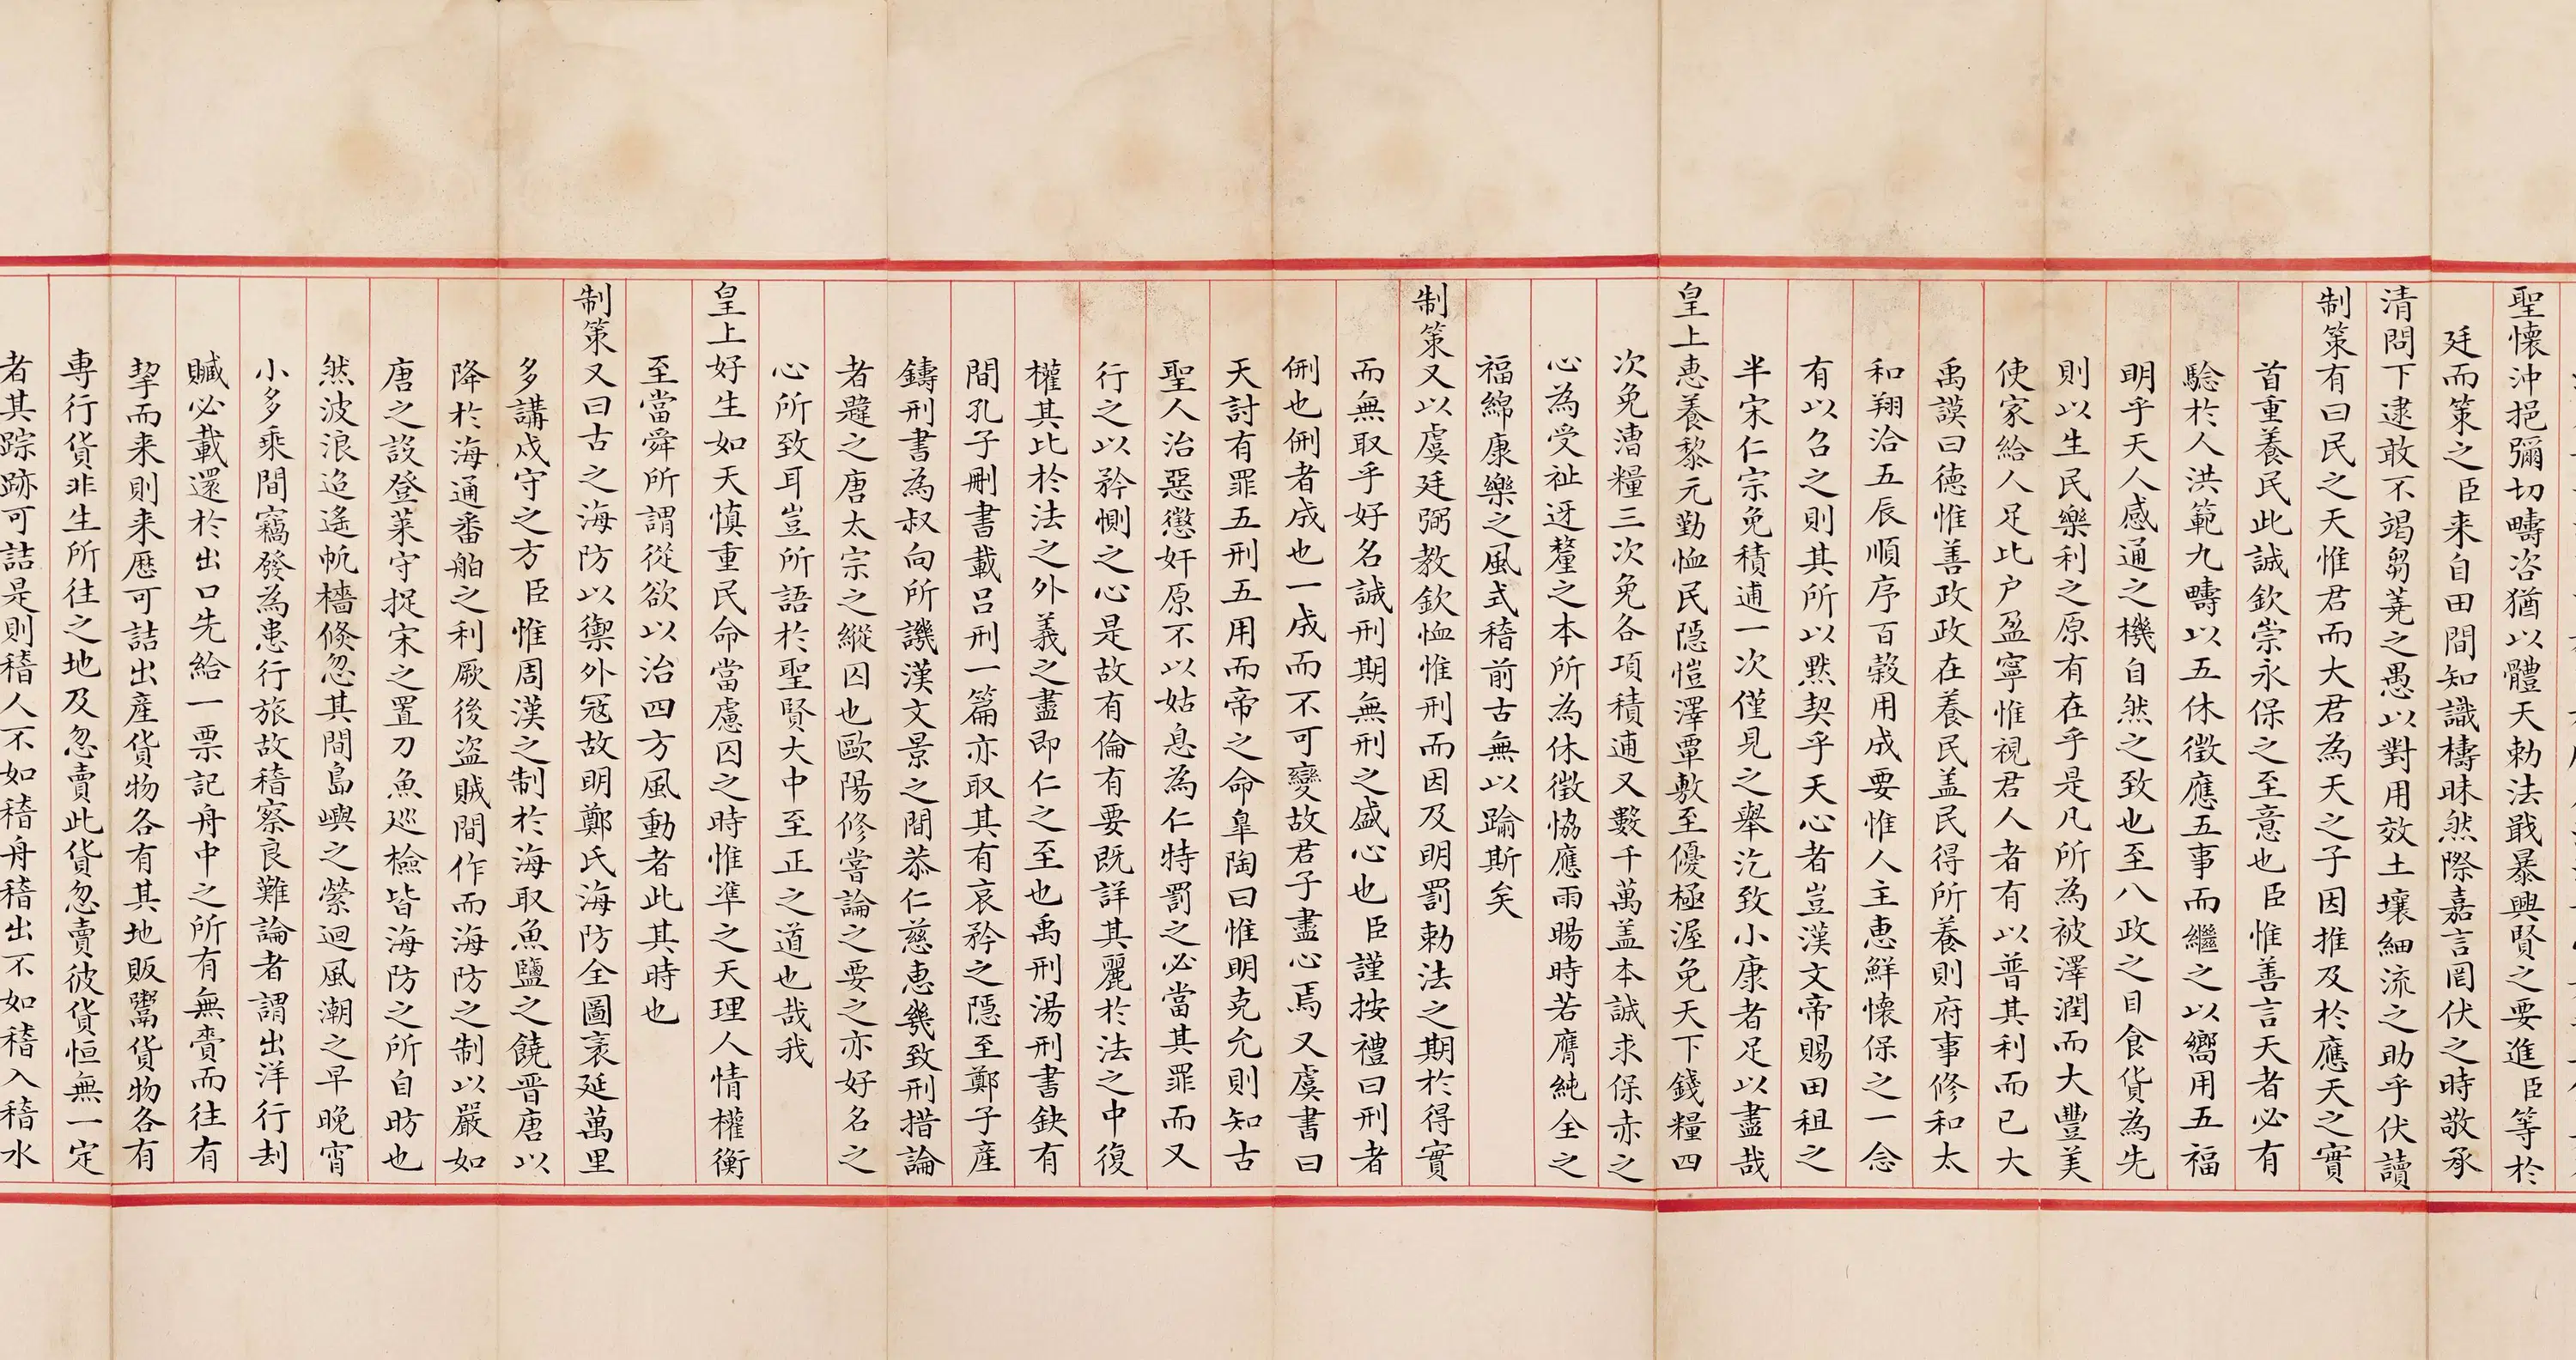 聖懷沖挹彌切疇咨猶以體天勅法戢暴興賢之要進臣等於
廷而策之臣来自田間知識檮昧然際嘉言罔伏之時敬承
清問下逮敢不竭芻蕘之愚以對用效土壤細流之助乎伏讀
制策有曰民之天惟君而大君為天之子因推及於應天之實
首重養民此誠欽崇永保之至意也臣惟善言天者必有
驗於人洪範九疇以五休徵應五事而繼之以嚮用五福
明乎天人感通之機自然之致也至八政之目食貨為先
則以生民樂利之原有在乎是凡所為被澤潤而大豐美
使家給人足比户盈寧惟視君人者有以普其利而已大
禹謨曰德惟善政政在養民盖民得所養則府事修和太
和翔洽五辰順序百穀用成要惟人主惠鮮懷保之一念
有以召之則其所以默契乎天心者豈漢文帝賜田租之
半宋仁宗免積逋一次僅見之舉汔致小康者足以盡哉
皇上惠養黎元勤恤民隱愷澤覃敷至優極渥免天下錢糧四
次免漕糧三次免各項積逋又數千萬盖本誠求保赤之
心為受祉迓釐之本所為休徵協應雨暘時若膺純全之
福綿康樂之風式稽前古無以踰斯矣
制策又以虞廷弼教欽恤惟刑而因及明罰勅法之期於得實
而無取乎好名誠刑期無刑之盛心也臣謹按禮曰刑者
侀也侀者成也一成而不可變故君子盡心焉又虞書曰
天討有罪五刑五用而帝之命皐陶曰惟明克允則知古
聖人治惡懲奸原不以姑息為仁特罰之必當其罪而又
行之以矜惻之心是故有倫有要既詳其麗於法之中復
權其比於法之外義之盡即仁之至也禹刑湯刑書缺有
間孔子刪書載吕刑一篇亦取其有哀矜之隱至鄭子產
鑄刑書為叔向所譏漢文景之間恭仁慈惠幾致刑措論
者韙之唐太宗之縱囚也歐陽修嘗論之要之亦好名之
心所致耳豈所語於聖賢大中至正之道也哉我
皇上好生如天慎重民命當慮囚之時惟凖之天理人情權衡
至當舜所謂從欲以治四方風動者此其時也
制策又曰古之海防以禦外冦故明鄭氏海防全圖袤延萬里
多講戍守之方臣惟周漢之制於海取魚鹽之饒晋唐以
降於海通番舶之利厥後盗賊間作而海防之制以嚴如
唐之設登萊守捉宋之置刀魚廵檢皆海防之所自昉也
然波浪迢遙帆檣倏忽其間島嶼之縈迴風潮之早晚宵
小多乘間竊發為患行旅故稽察良難論者謂出洋行刦
贓必載還於出口先給一票記舟中之所有無賫而往有
挈而来則来歷可詰出產貨物各有其地販鬻貨物各有
専行貨非生所往之地及忽賣此貨忽賣彼貨恒無一定
者其踪跡可詰是則稽人不如稽舟稽出不如稽入稽水